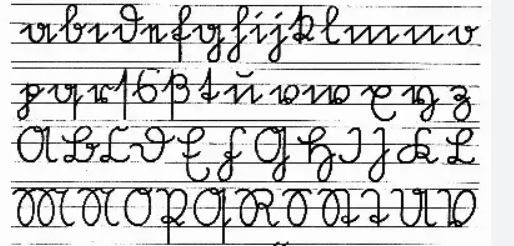 a b c d e f g h i j k l m n o
p q r ſ s ß t u v w x y z
A B C D E F G H I J K L
M N O P Q R S T U V